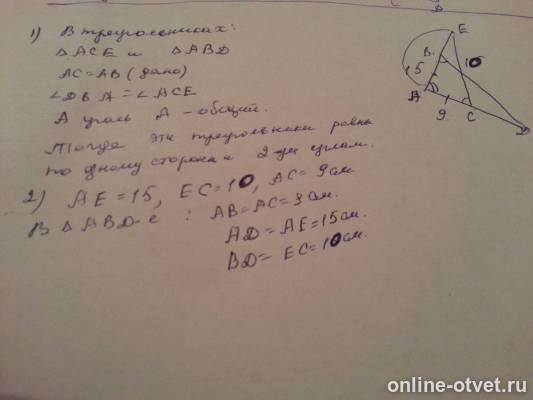 1) В треугольниках:
△ACE и △ABD
AC=AB (дано)
∠DBA=∠ACE
A угол A - общий.
Тогда эти треугольники равны
по одному стороне и 2-ум углам.
2) AE=15, EC=10, AC=9см
В △ABD-е: AB=AC=9см.
AD=AE=15см.
BD=EC=10см.
E
B
15
10
A
9
C
D
online-otvet.ru